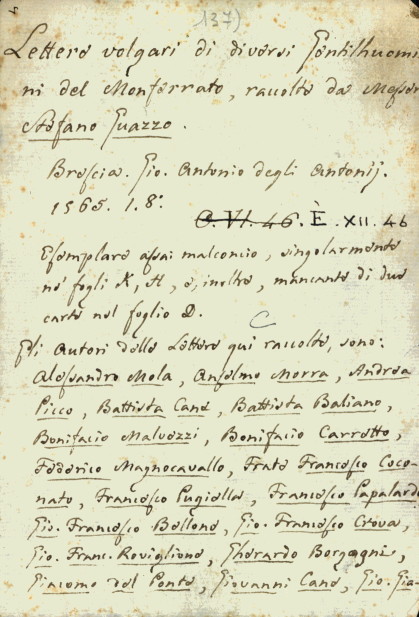 137)
Lettere volgari di diversi Gentilhuomi
ni del Monferrato, raccolte da Messer
Stefano Guazzo.
Brescia. Gio. Antonio degli Antonij.
1565. 1. 8°.
O. VI. 46. È. XII. 46
Esemplare assai malconcio, singolarmente
ne' fogli K, H, e, inoltre, mancante di due
carte nel foglio D.
Gli Autori delle Lettere qui raccolte, sono:
Alessandro Mola, Anselmo Morra, Andrea
Picco, Battista Cane, Battista Baliano,
Bonifacio Malvezzi, Bonifacio Carretto,
Federico Magnocavallo, Frate Francesco Coco-
nato, Francesco Pugiella, Francesco Papalardo
Gio. Francesco Bellone, Gio. Francesco Crova,
Gio. Franc. Roviglione, Gherardo Borgogni,
Giacomo del Ponte, Giovanni Cane, Gio. Gia-